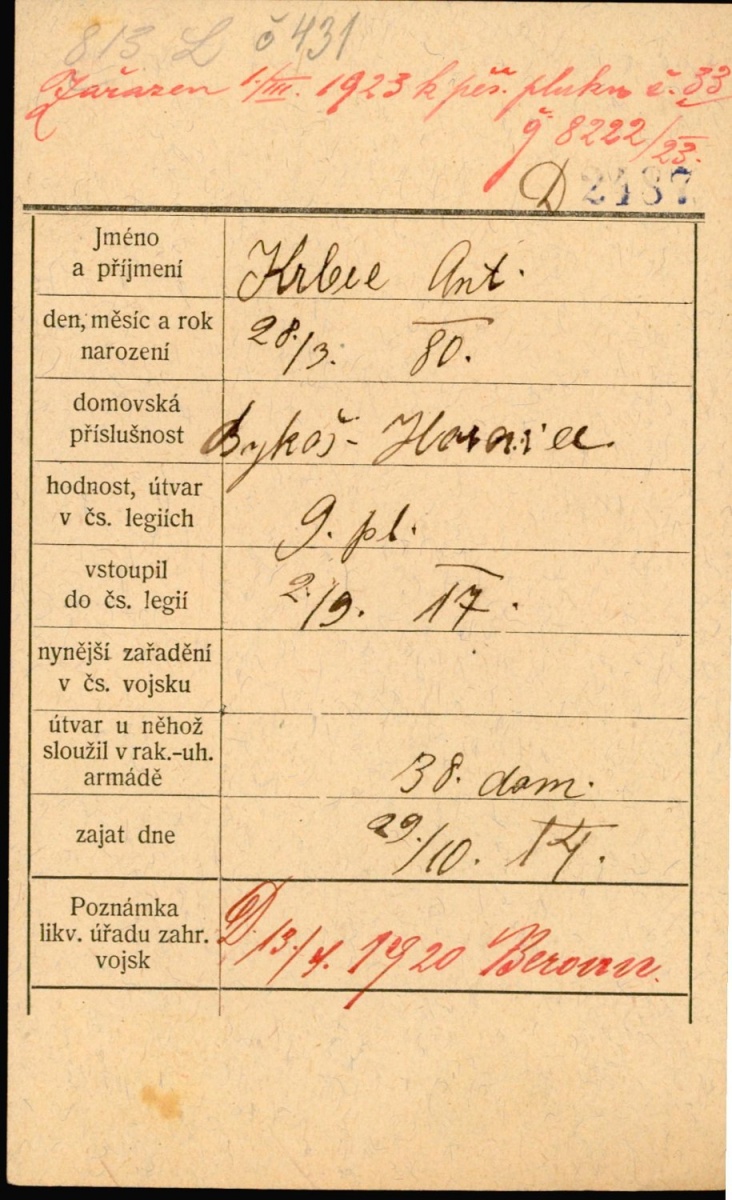 813 L č 431
Zařazen 1./III. 1923 k pěš. pluku č. 33
č 8222/23.
D 2487
Jméno
a příjmení
Krbec Ant.
den, měsíc a rok
narození
28./3. 80.
domovská
příslušnost
Bykoš-
hodnost, útvar
v čs. legiích
9. pl.
vstoupil
do čs. legií
2./9. 17.
nynější zařadění
v čs. vojsku
útvar u něhož
sloužil v rak.-uh.
armádě
38. dom.
zajat dne
29./10. 14.
Poznámka
likv. úřadu zahr.
vojsk
D. 13./4. 1920 Beroun.